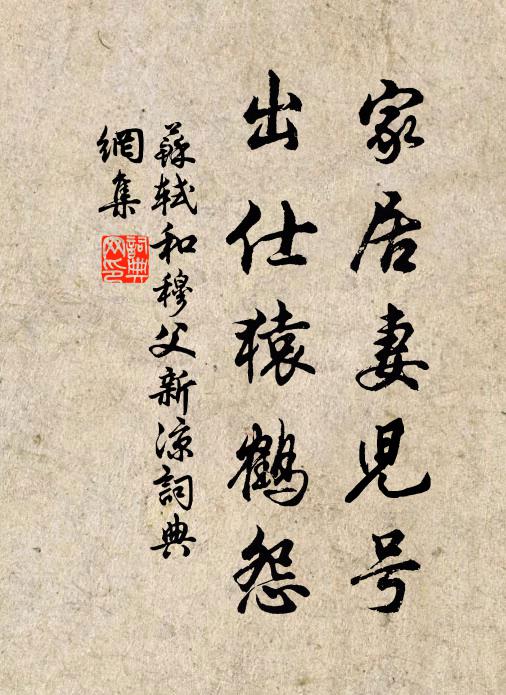 家居妻児号
出仕猿鶴怨
蘇軾和穆父新涼詞典
網集
詞典
网印